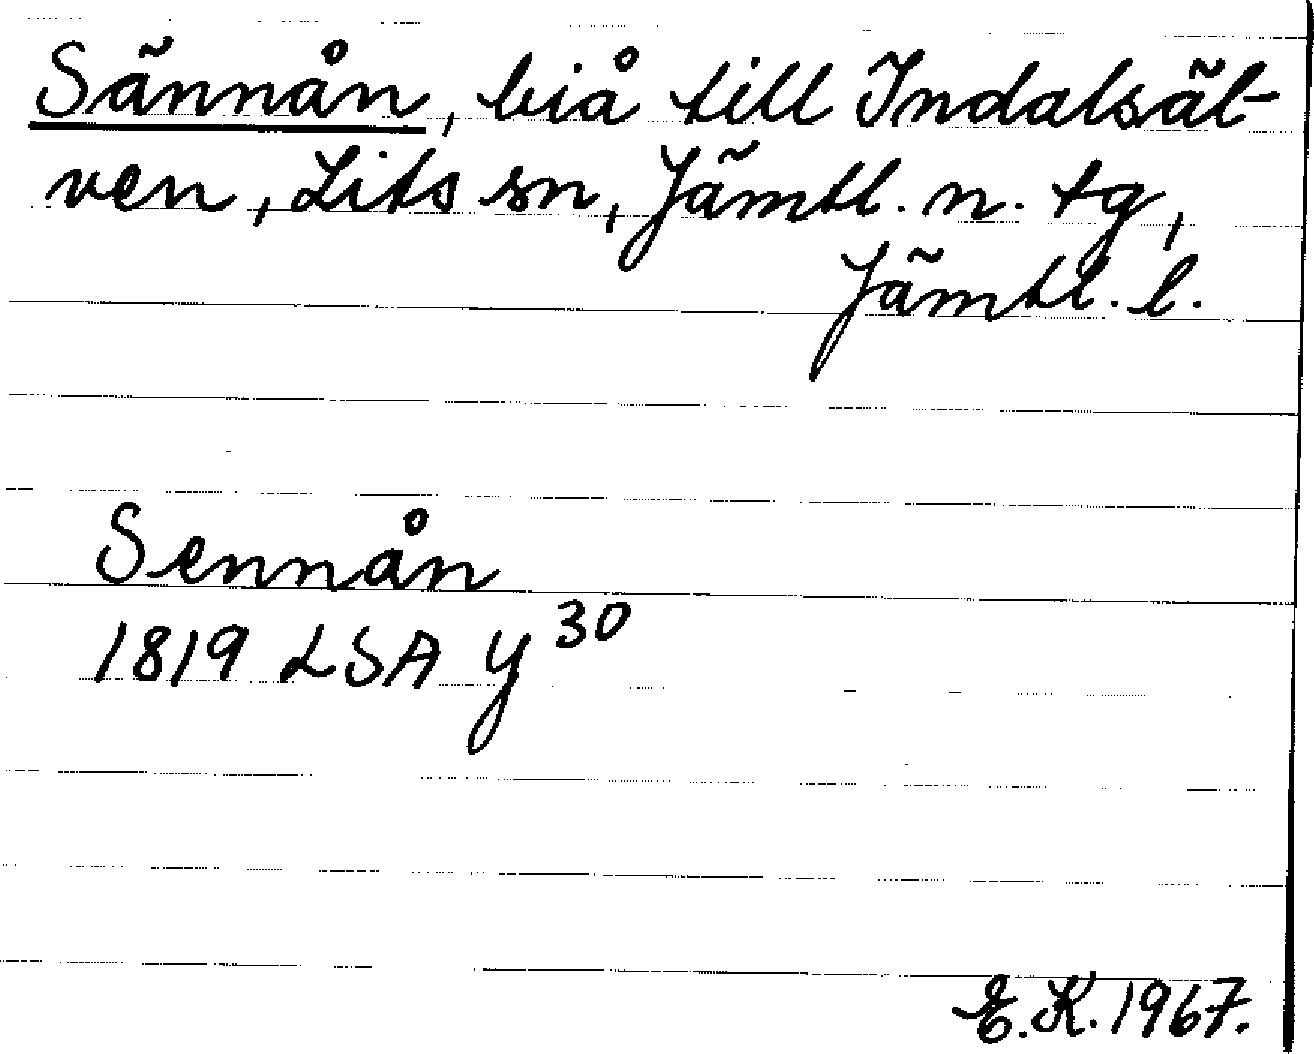 Sännån, biå till Indalsäl-
ven, Lits sn, Jämtl. n. tg,
Jämtl. l.
Sennån
1819 LSA Y 30
E.K. 1967.